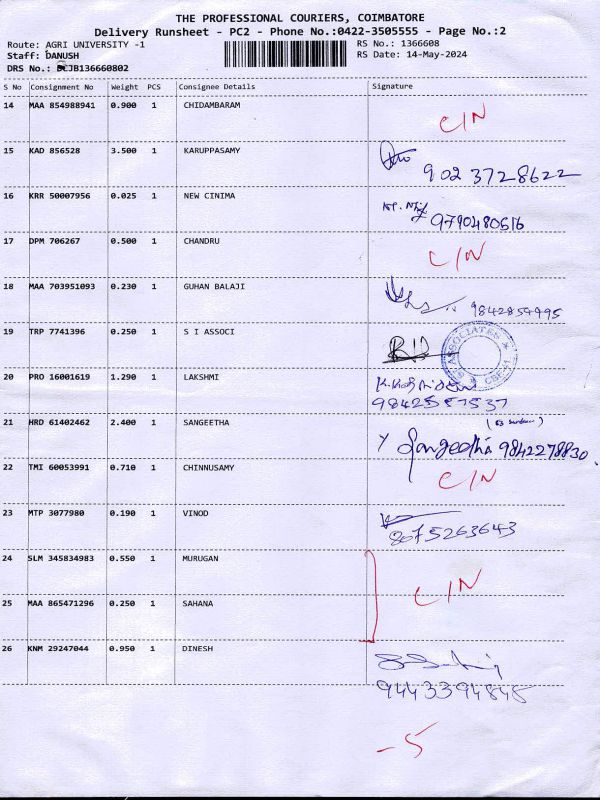 THE PROFESSIONAL COURIERS, COIMBATORE
Delivery Runsheet - PC2 - Phone No.:0422-3505555 - Page No.:2
Route: AGRI UNIVERSITY -1 RS No.: 1366608
Staff: DANUSH RS Date: 14-May-2024
DRS No.: JB136660802
S No Consignment No Weight PCS Consignee Details Signature
14 MAA 854988941 0.900 1 CHIDAMBARAM C/N
15 KAD 856528 3.500 1 KARUPPASAMY
902 3728622
16 KRR 50007956 0.025 1 NEW CINIMA
9790480516
17 DPM 706267 0.500 1 CHANDRU C/N
18 MAA 703951093 0.230 1 GUHAN BALAJI
19 TRP 7741396 0.250 1 S I ASSOCI
SI ASSOCIATES * CBE-41 *
20 PRO 16001619 1.290 1 LAKSHMI
21 HRD 61402462 2.400 1 SANGEETHA
Sangeetha 9842278830
22 TMI 60053991 0.710 1 CHINNUSAMY C/N
23 MTP 3077980 0.190 1 VINOD
8075263643
24 SLM 345834983 0.550 1 MURUGAN
C/N
25 MAA 865471296 0.250 1 SAHANA
26 KNM 29247044 0.950 1 DINESH
9443394848
-5